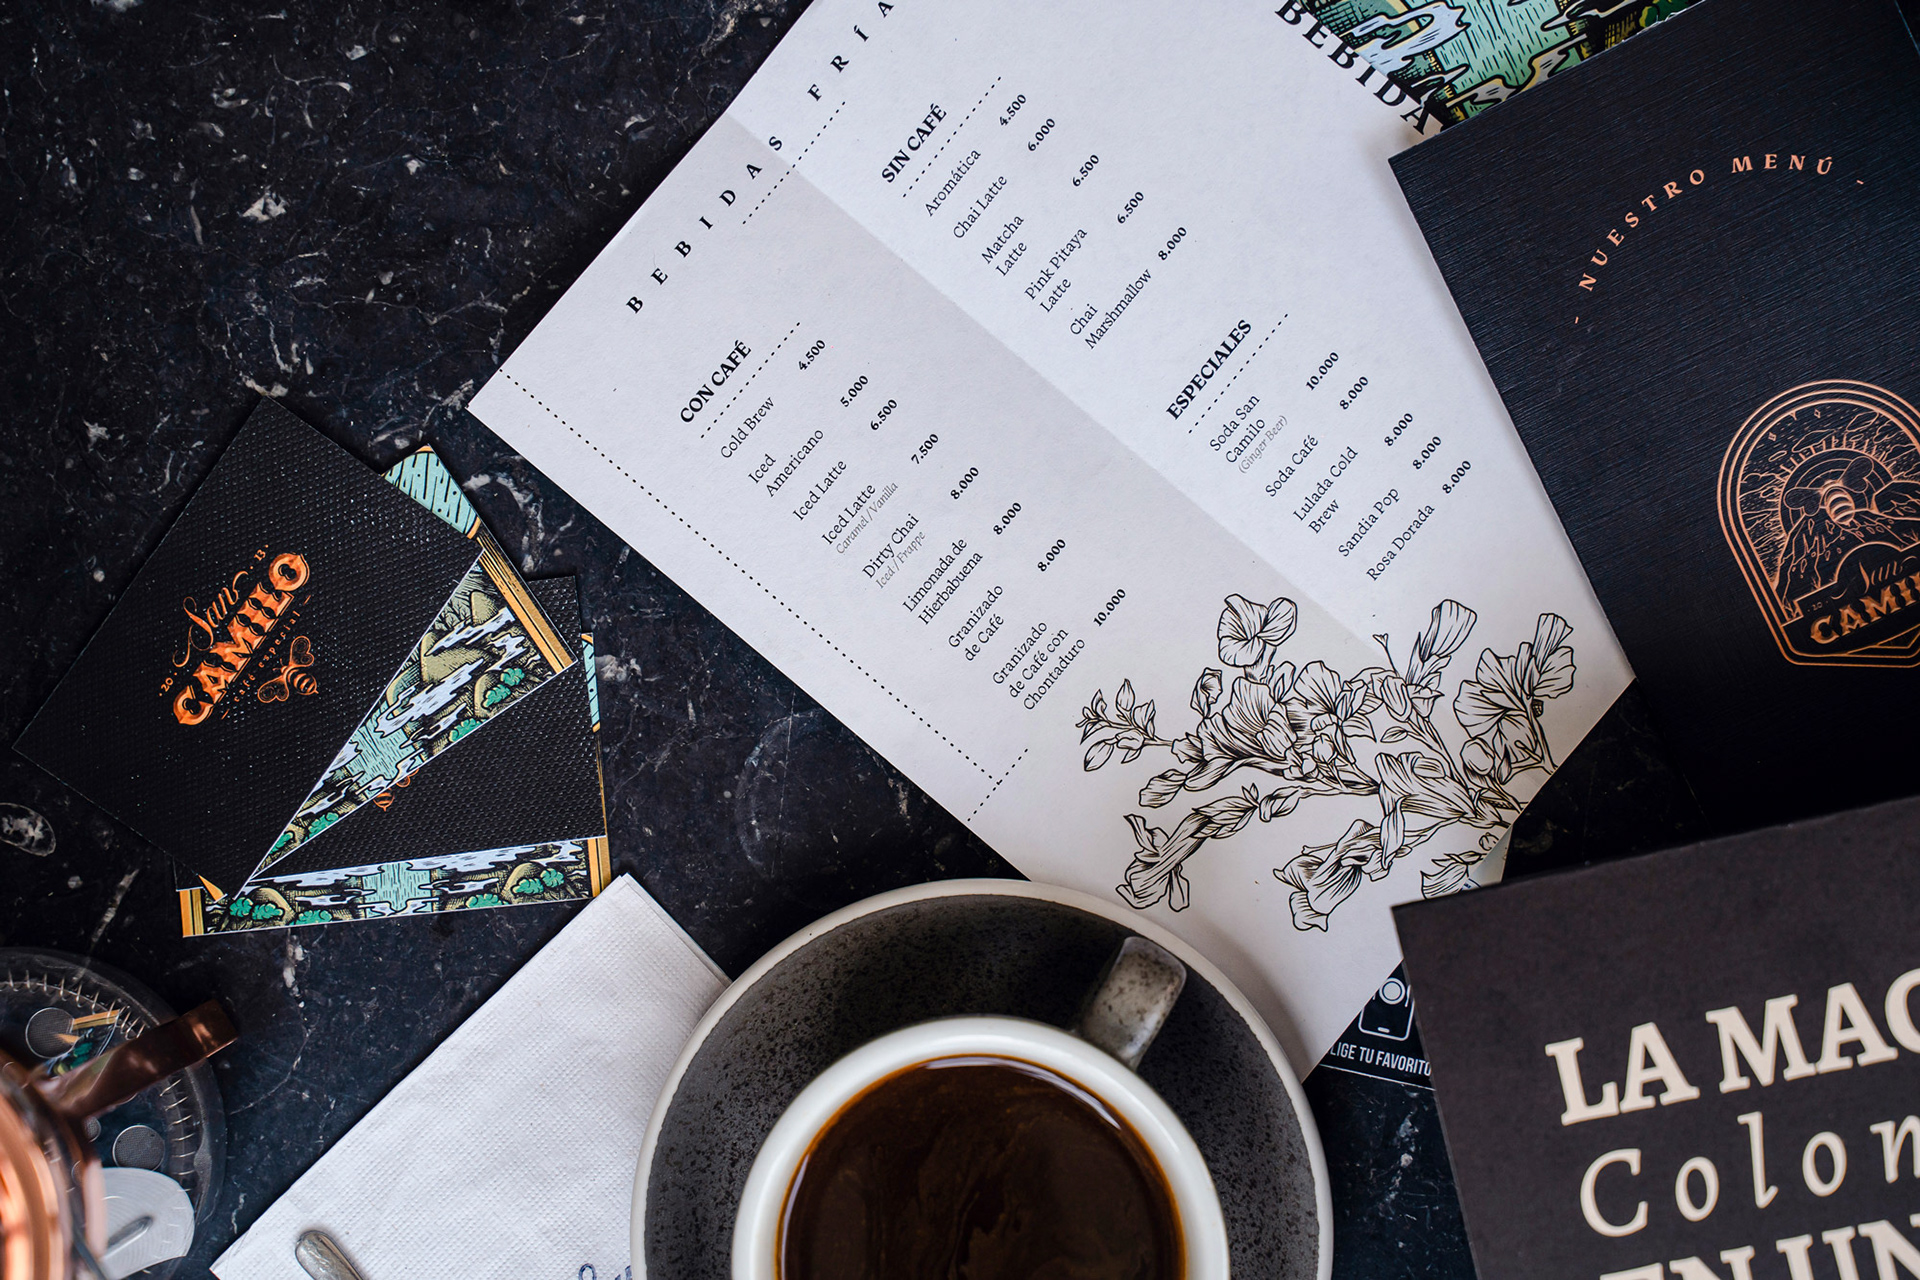 BEBIDAS FRÍA
CON CAFÉ
Cold Brew 4.500
Iced
Americano 5.000
Iced Latte 6.500
Iced Latte 7.500
Caramel / Vanilla
Dirty Chai 8.000
Iced / Frappe
Limonada de
Hierbabuena 8.000
Granizado
de Café 8.000
Granizado
de Café con
chontaduro 10.000
SIN CAFÉ
Aromática 4.500
Chai Latte 6.000
Matcha
Latte 6.500
Pink Pitaya
Latte 6.500
Chai
Marshmallow 8.000
ESPECIALES
Soda San
Camilo 10.000
(Ginger Beer)
Soda Café 8.000
Lulada Cold
Brew 8.000
Sandia Pop 8.000
Rosa Dorada 8.000
BEBIDA
- NUESTRO MENÚ -
San
CAMI
San
20 CAMILO 13
café especial
LIGE TU FAVORITO
LA MAG
Colom
EN UN